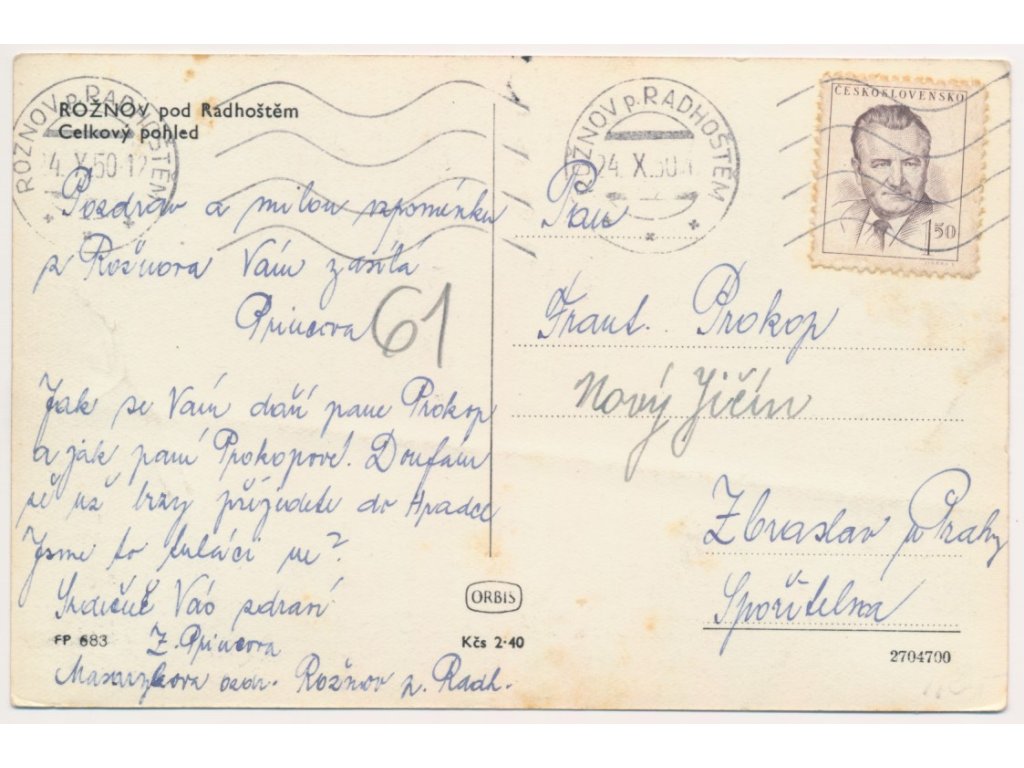 ROŽNOV pod Radhoštěm
Celkový pohled
ROŽNOV p. RADHOŠTĚM
24. X. 50-12
Pozdrav a milou vzpomínku
z Rožnova Vám zasílá
Princova
61
Jak se Vám daří pane Prokop
a jak paní Prokopové. Doufám
že už brzy přijedete do Hradce
Jsme to tuláci ne?
Srdečně Vás zdraví
Z. Princova
Masarykova ozdr. Rožnov p. Radh.
FP 683
ORBIS
Kčs 2·40
ROŽNOV p. RADHOŠTĚM
24. X. 50
ČESKOSLOVENSKO
1 50
Pan
Frant. Prokop
Nový Jičín
Zbraslav u Prahy
Spořitelna
2704700